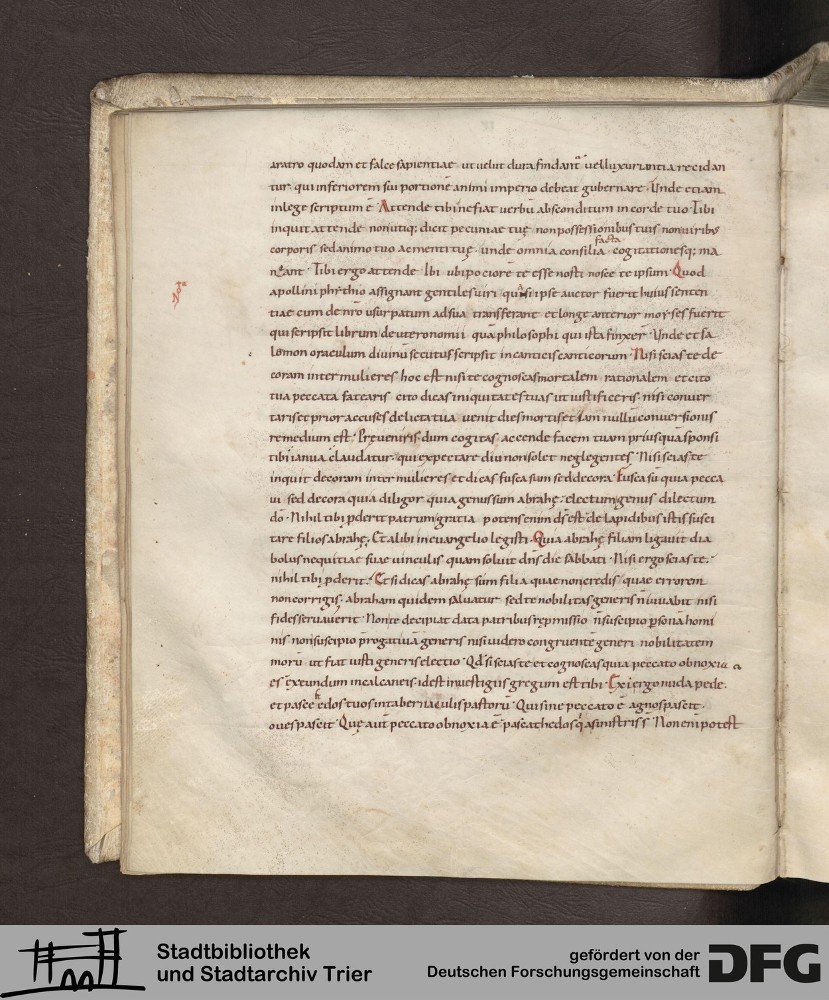 aratro quodam et falce sapientiae ut uelut dura findant uel luxuriantia recidan
tur qui inferiorem sui portionē animi imperio debeat gubernare. Unde etiam
in lege scriptum ē Attende tibi ne fiat uerbū absconditum in corde tuo. Tibi
inquit attende non utiq; dicit pecuniae tuę non possessionibus tuis non uiribus
corporis sed animo tuo ac menti tuę unde omnia consilia facta cogitationesq; ma
nant. Tibi ergo attende Ibi ubi potiorē te esse nosti nosce te ipsum. Quod
Nōt
apollini phythio assignant gentiles uiri quasi ipse auctor fuerit huius senten
tiae cum de nr̄o usurpatum ad sua transferant et longe anterior moyses fuerit
qui scripsit librum deuteronomii quā philosophi qui ista finxer̄. Unde et sa
lomon oraculum diuinū secutus scripsit in canticis canticorum. Nisi scias te de
coram inter mulieres hoc est nisi te cognoscas mortalem rationalem et cito
tua peccata fatearis cito dicas iniquitates tuas ut iustificeris nisi conuer
taris et prior accuses delicta tua uenit dies mortis et iam nullū conuersionis
remedium est. Preueniris dum cogitas accende facem tuam priusquā sponsi
tibi ianua claudatur qui expectare diu non solet neglegentes. Nisi scias te
inquit decoram inter mulieres et dicas fusca sum sed decora. Fusca sū quia pecca
ui sed decora quia diligor quia genus sum abrahę electum genus dilectum
dō. Nihil tibi p̄derit patrum gratia potens enim ds̄ est de lapidibus istis susci
tare filios abrahę. Et alibi in euangelio legisti. Quia abrahę filiam ligauit dia
bolus nequitiae suae uinculis quam soluit dn̄s die sabbati. Nisi ergo scias te
nihil tibi p̄derit. Et si dicas abrahę sum filia quae non credis quae errorem
non corrigis. abraham quidem saluatur sed te nobilitas generis n̄ iuuabit nisi
fides seruauerit. Non te decipiat data patribus repmissio n̄ suscipio psonā homi
nis non suscipio p̄rogatiuā generis nisi uidero congruentē generi nobilitatem
morū ut fiat iusti generis electio. Qd̄ si scias te et cognoscas quia peccato obnoxia
es exeundum in calcaneis id est in uestigiis gregum est tibi. Exi ergo nuda pede
et pasce hedos tuos in tabernaculis pastorū. Qui sine peccato ē agnos pascit
oues pascit. Quę aut̄ peccato obnoxia ē pascat hedos q a sinistris s̄. Non enī potest
Stadtbibliothek
und Stadtarchiv Trier
gefördert von der
Deutschen Forschungsgemeinschaft
DFG